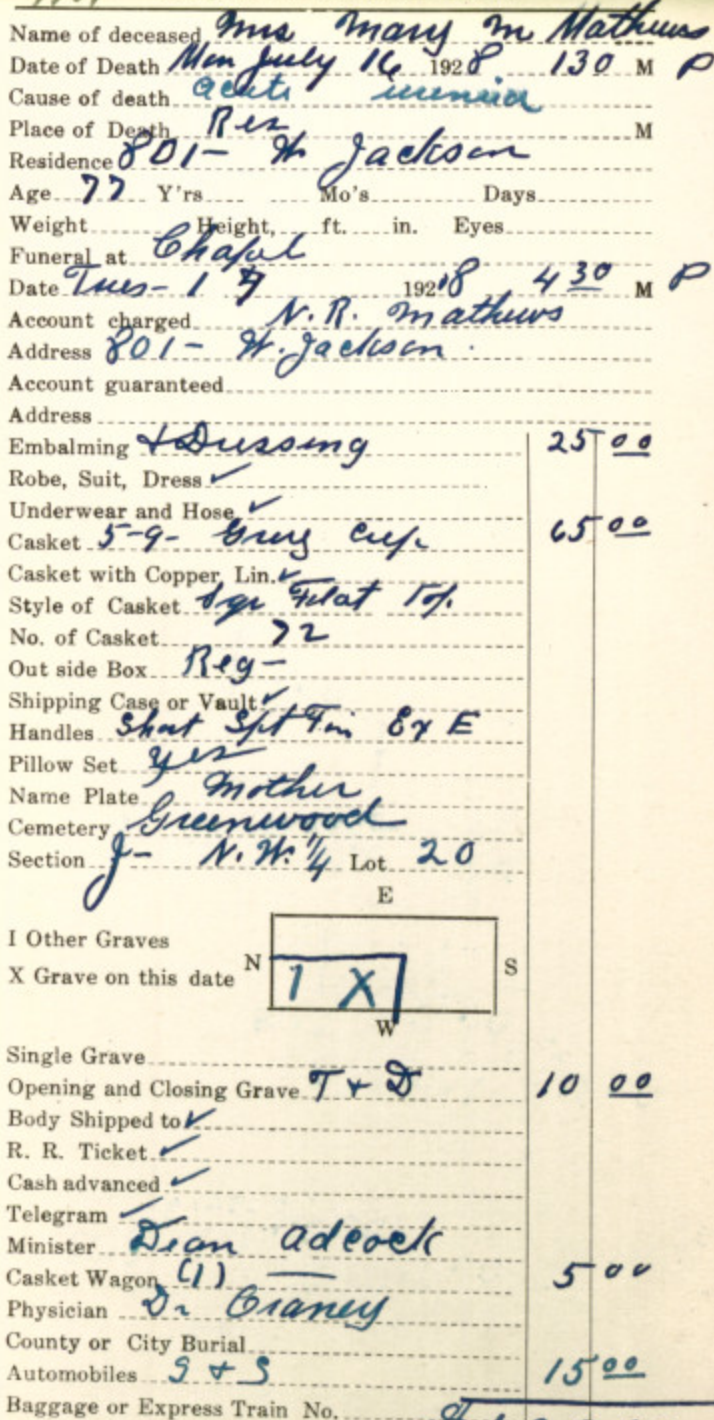 Name of deceased Mrs Mary M Mathews
Date of Death Mon July 16 1928 1 30 M P
Cause of death acute uremia
Place of Death Res M
Residence 801- W Jackson
Age 77 Y'rs Mo's Days
Weight Height, ft. in. Eyes
Funeral at Chapel
Date Tues- 17 1928 4 30 M P
Account charged N. R. Mathews
Address 801- W. Jackson.
Account guaranteed
Address
Embalming + Dressing 25 00
Robe, Suit, Dress ✓
Underwear and Hose ✓
Casket 5-9- Grey Crep. 65 00
Casket with Copper Lin. ✓
Style of Casket Sqr Flat Top.
No. of Casket 72
Out side Box Reg-
Shipping Case or Vault ✓
Handles Short Ex E
Pillow Set yes
Name Plate Mother
Cemetery Greenwood
Section J- N. W. 1/4 Lot 20
E
I Other Graves
X Grave on this date N 1 X S
W
Single Grave
Opening and Closing Grave T + D 10 00
Body Shipped to ✓
R. R. Ticket ✓
Cash advanced ✓
Telegram ✓
Minister Dean Adcock
Casket Wagon (1) — 5 00
Physician Dr Craney
County or City Burial
Automobiles S + S 15 00
Baggage or Express Train No.